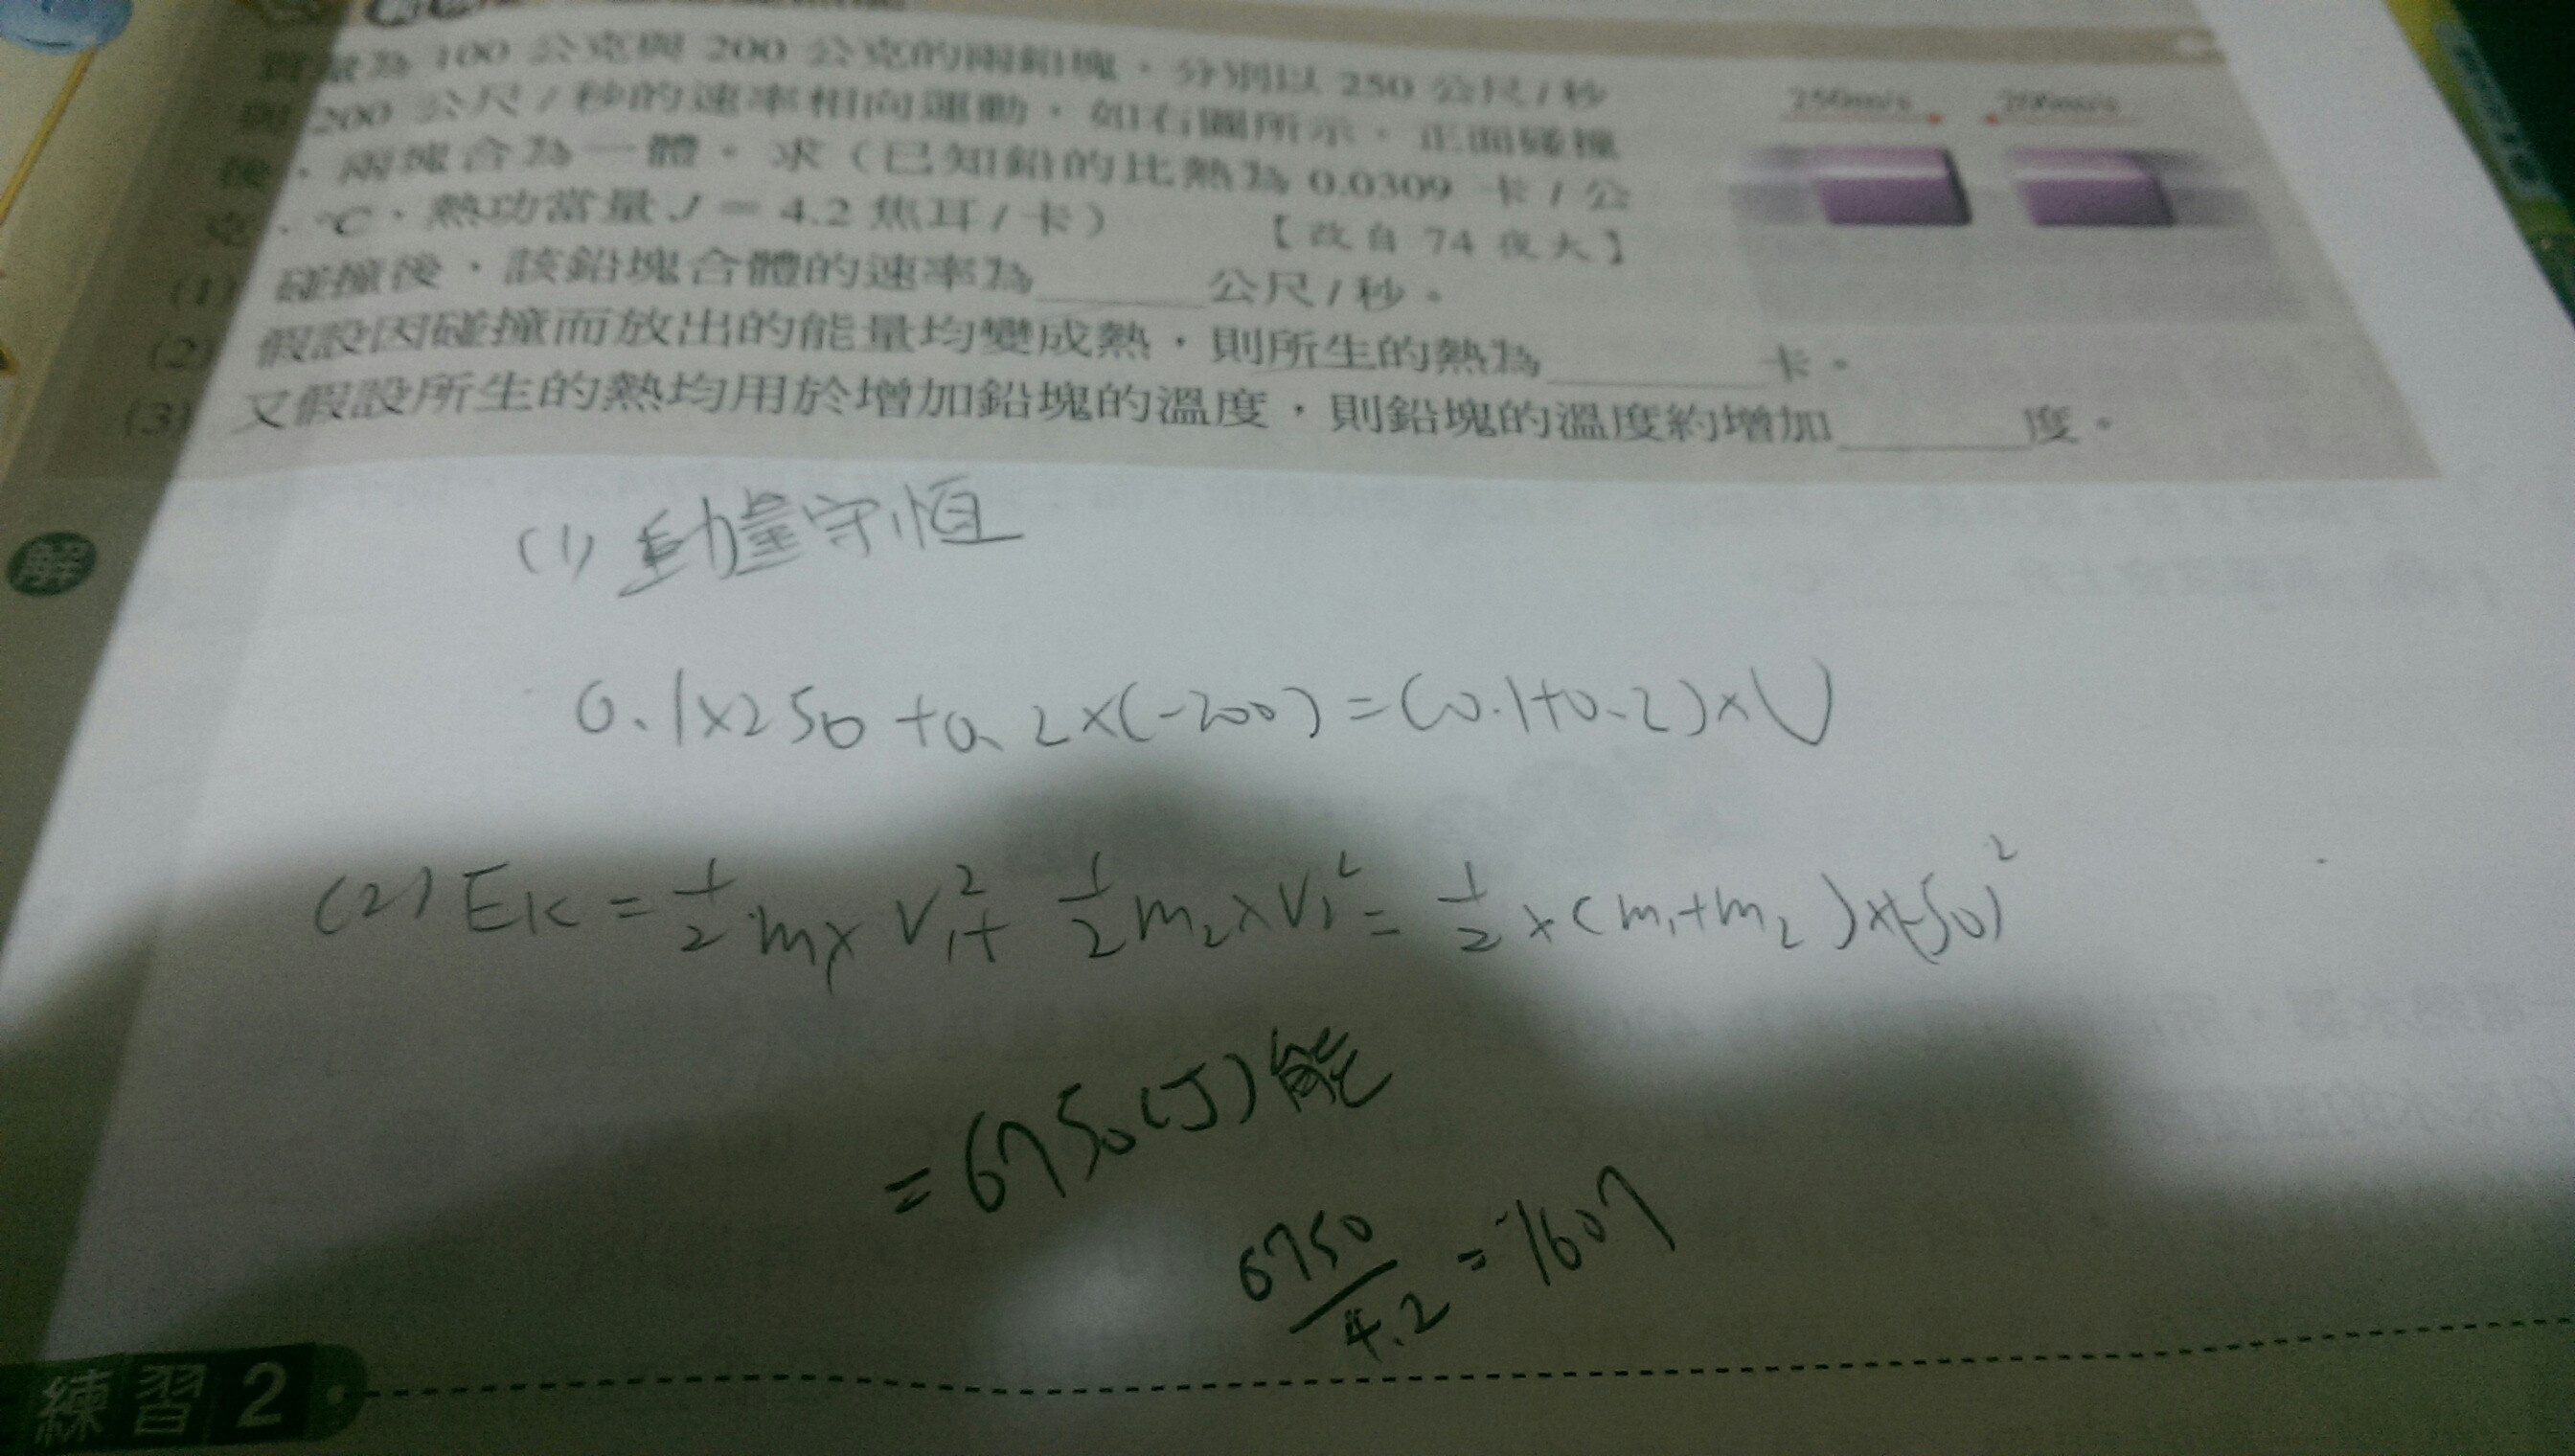 質量為 100 公克與 200 公克的兩鉛塊，分別以 250 公尺/秒
與 200 公尺/秒的速率相向運動，如右圖所示。正面碰撞
後，兩塊合為一體。求（已知鉛的比熱為 0.0309 卡/公
克．℃，熱功當量 J = 4.2 焦耳/卡）【改自 74 夜大】
250m/s 200m/s
(1) 碰撞後，該鉛塊合體的速率為______公尺/秒。
(2) 假設因碰撞而放出的能量均變成熱，則所生的熱為______卡。
(3) 又假設所生的熱均用於增加鉛塊的溫度，則鉛塊的溫度約增加______度。
解
(1) 動量守恆
0.1×250+0.2×(-200)=(0.1+0.2)×V
(2) EK=1/2 m₁×V₁²+1/2 m₂×V₂²=1/2×(m₁+m₂)×(-50)²
=6750(J)能
6750/4.2=1607
練習 2